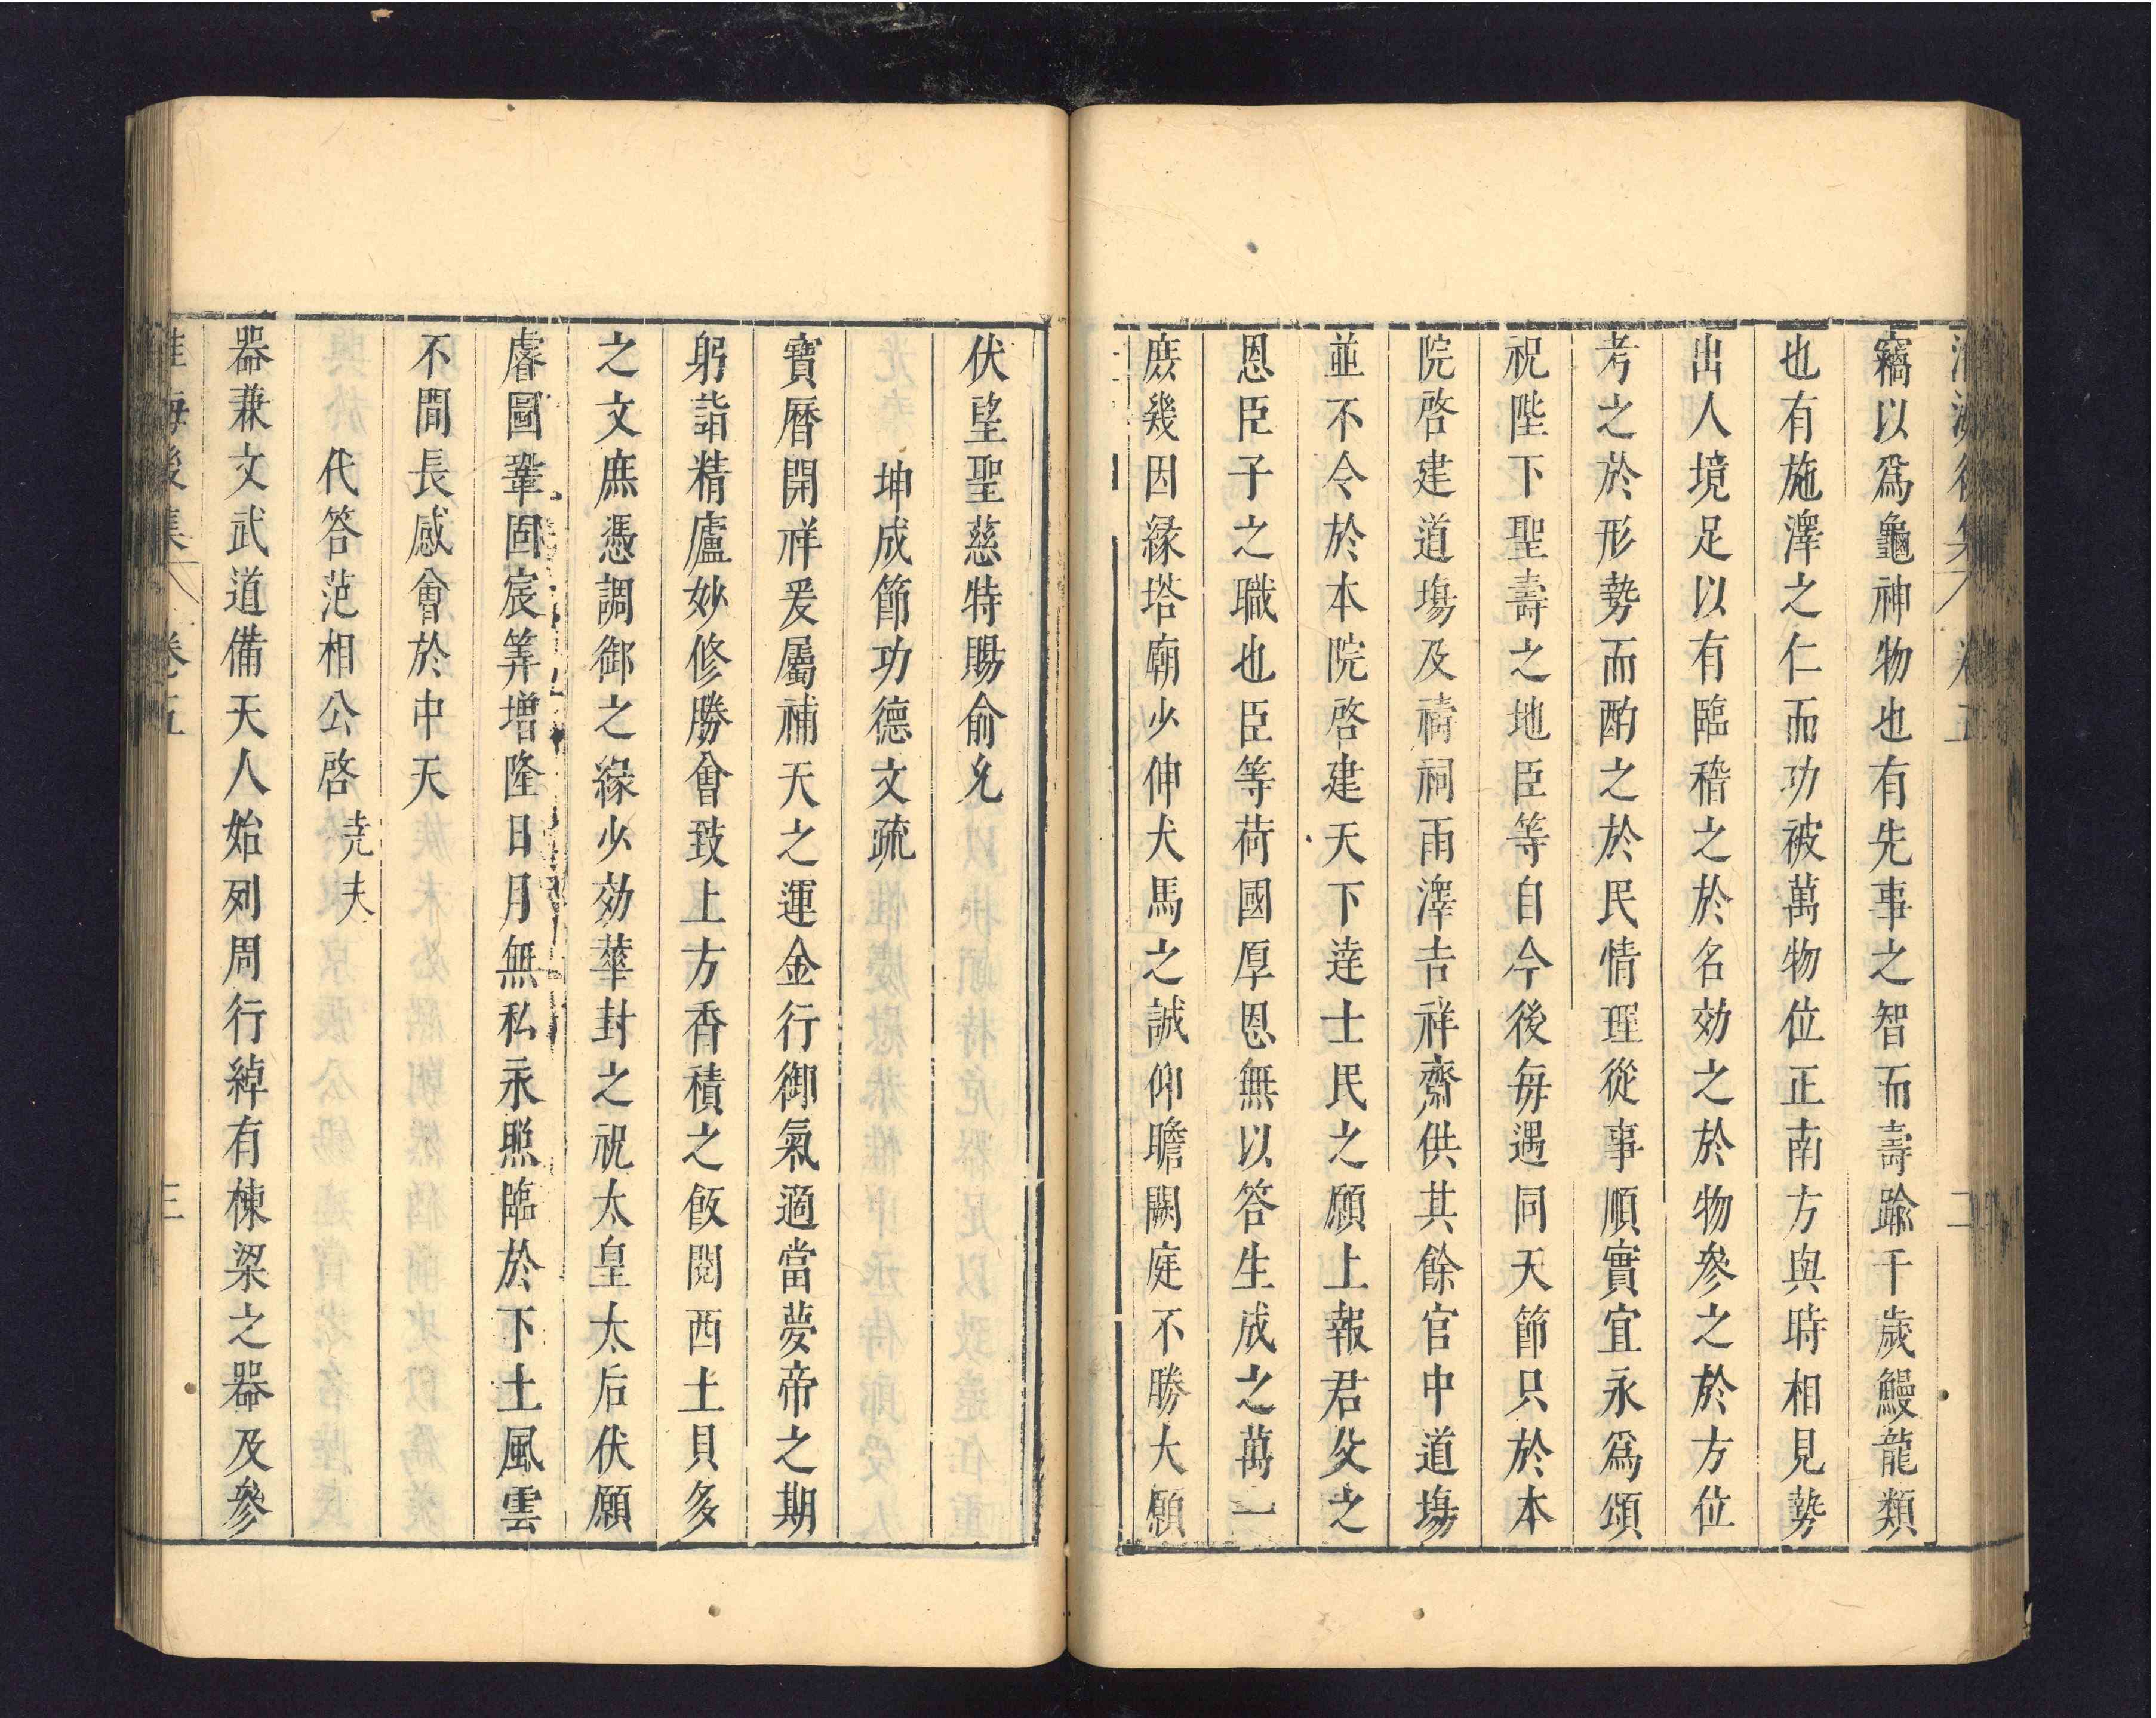 淮海後集 卷五 二
竊以爲龜神物也有先事之智而壽踰千歲鰻龍類
也有施澤之仁而功被萬物位正南方與時相見勢
出人境足以有臨稽之於名効之於物參之於方位
考之於形勢而酌之於民情理從事順實宜永爲頌
祝陛下聖壽之地臣等自今後每遇同天節只於本
院啓建道塲及禱祠雨澤吉祥齋供其餘官中道塲
並不令於本院啓建天下達士民之願上報君父之
恩臣子之職也臣等荷國厚恩無以答生成之萬一
庶幾因緣塔廟少伸犬馬之誠仰瞻闕庭不勝大願
伏望聖慈特賜俞允
坤成節功德文疏
寶曆開祥爰屬補天之運金行御氣適當夢帝之期
躬詣精廬妙修勝會致上方香積之飯閱西土貝多
之文庶憑調御之緣少効華封之祝太皇太后伏願
睿圖鞏固宸筭增隆日月無私永照臨於下土風雲
不間長感會於中天
代答范相公啓 堯夫
器兼文武道備天人始列周行綽有棟梁之器及參
淮海後集 卷五 三